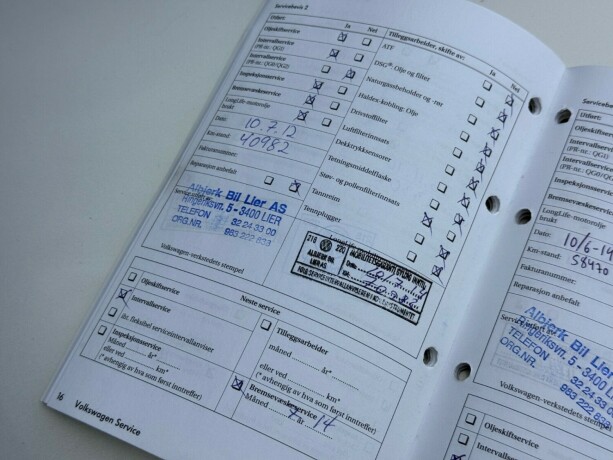 Servicebevis 2
Utført: Ja Nei
Oljeskiftservice
Intervallservice
(PR-nr.: QG1)
Intervallservice
(PR-nr.: QG0/QG2)
Inspeksjonsservice
Bremsevæskeservice
LongLife-motorolje
brukt
Dato: 10.7.12
Km-stand: 40982
Fakturanummer:
Reparasjon anbefalt
Albjerk Bil Lier AS
Ringeriksvn. 5 - 3400 LIER
TELEFON 32 24 33 00
ORG.NR. 983 222 833
Volkswagen-verkstedets stempel
Tilleggsarbeider, skifte av: Ja Nei
ATF
DSG®- Olje og filter
Haldex-kobling- Olje
Drivstoffilter
Luftfilterinnsats
Dekktrykksensorer
Tetningsmiddelflaske
Støv- og pollenfilterinnsats
Tannreim
Tennplugger
218 220
ALBJERK BIL
LIER AS
Neste service
Oljeskiftservice
Intervallservice
iht. fleksibel serviceintervallanviser
Inspeksjonsservice
Måned år*
eller ved km*
(* avhengig av hva som først inntreffer)
Tilleggsarbeider
måned år*
eller ved km*
(* avhengig av hva som først inntreffer)
Bremsevæskeservice
Måned 7 år 14
16 Volkswagen Service
Utført:
Oljeskiftservice
Intervallservice
(PR-nr.: QG1)
Intervallservice
Inspeksjonsservice
Bremsevæskeservice
LongLife-motorolje
brukt
Dato: 10/6-14
Km-stand: 58470
Fakturanummer:
Reparasjon anbefalt
Albjerk Bil Lier
Ringeriksvn. 5 - 3400
TELEFON 32 24
ORG.NR. 983 222
Volkswagen-verkstedets stempel
Oljeskiftservice